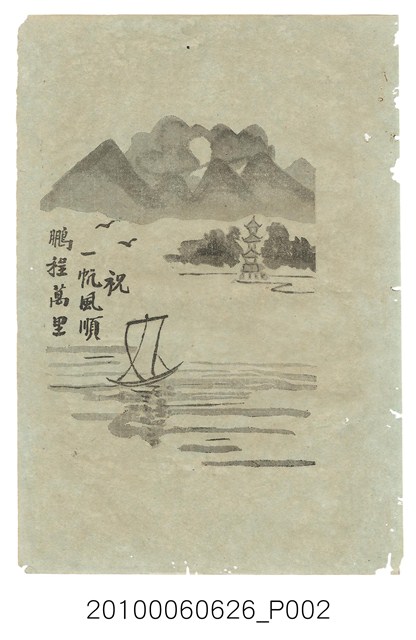 祝
一帆風順
鵬程萬里
20100060626_P002